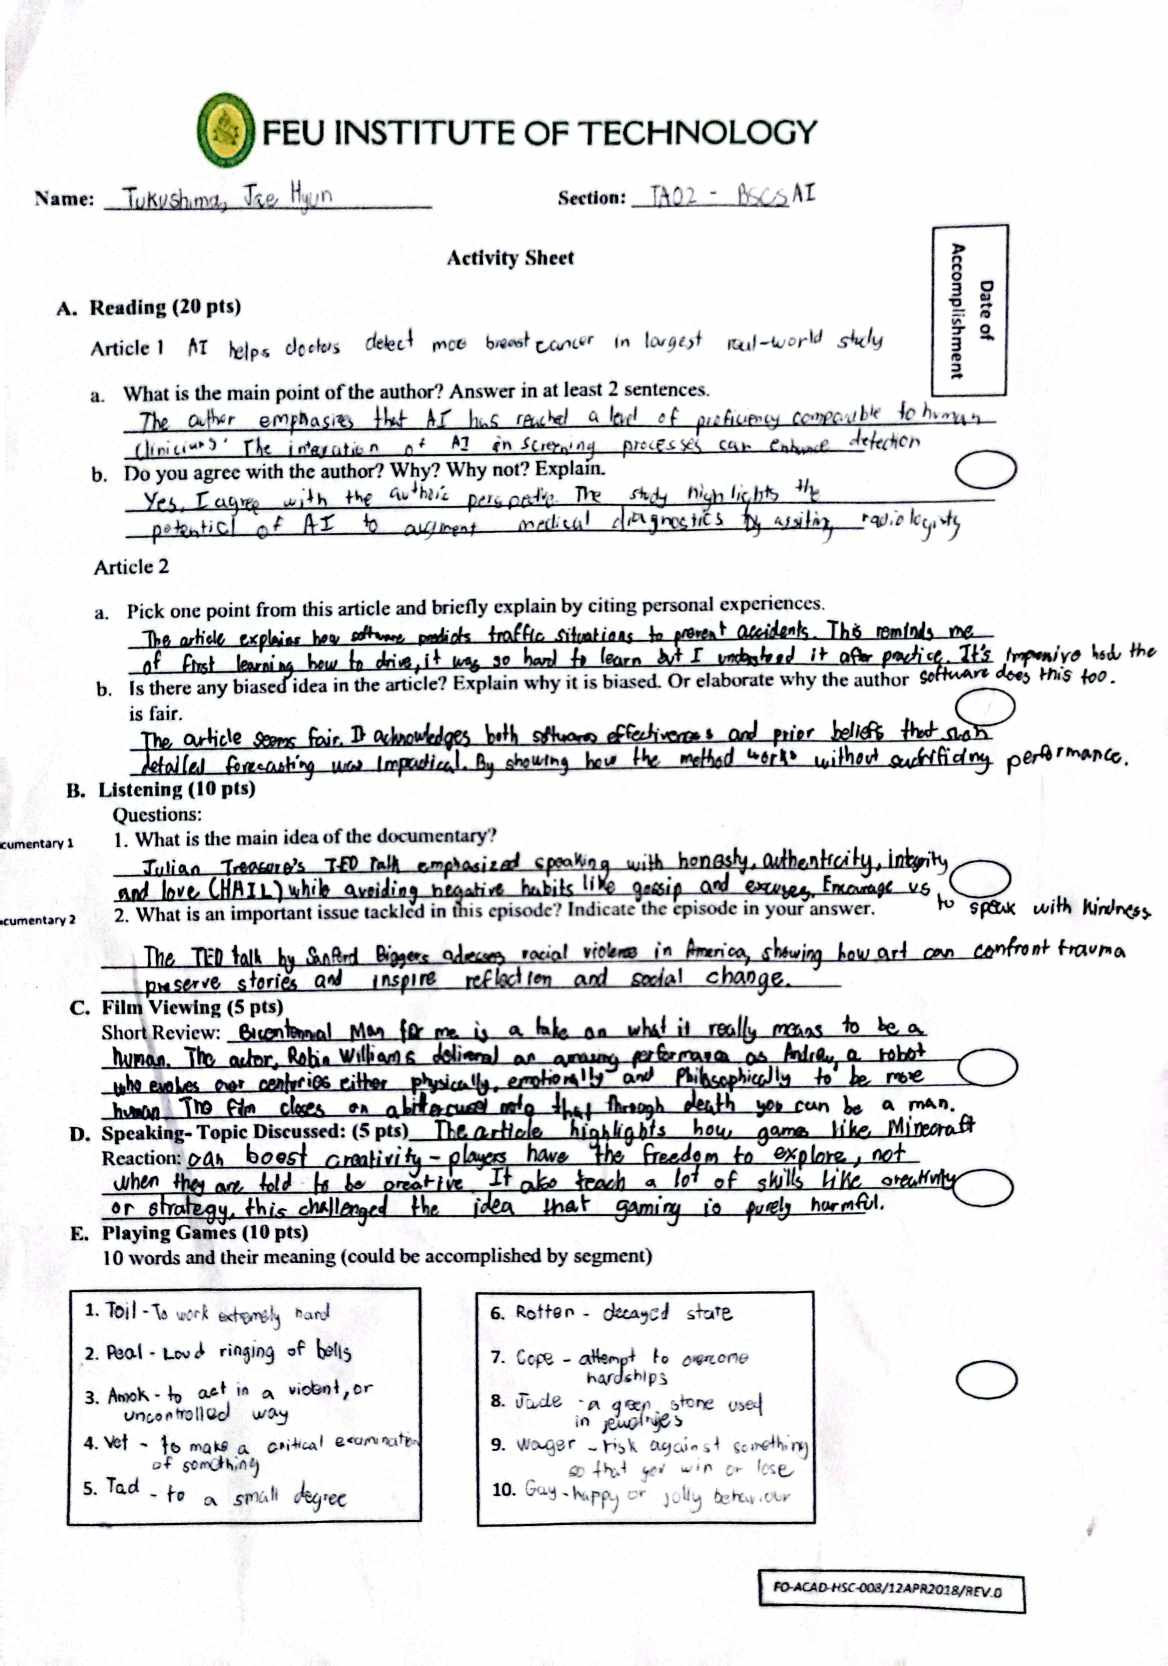 FEU INSTITUTE OF TECHNOLOGY
Name: Tukushima, Jae Hyun Section: TA02 - BSCSAI
Activity Sheet
Date of
Accomplishment
A. Reading (20 pts)
Article 1 AI helps doctors detect more breast cancer in largest real-world study
a. What is the main point of the author? Answer in at least 2 sentences.
The author emphasizes that AI has reached a level of proficiency comparable to human
clinicians. The integration of AI in screening processes can enhance detection
b. Do you agree with the author? Why? Why not? Explain.
Yes, I agree with the perspective. The study highlights the
potential of AI to augment medical diagnostics by assiting radiologists
Article 2
a. Pick one point from this article and briefly explain by citing personal experiences.
The article explains how software predicts traffic situations to prevent accidents. This reminds me
of first learning how to drive, it was so hard to learn but I understood it after practice. It's how the
b. Is there any biased idea in the article? Explain why it is biased. Or elaborate why the author software does this too.
is fair.
The article seems fair. It acknowledges both effectiveness and prior beliefs that such
detailed forecasting was impractical. By showing how the method works without sacrificing performance.
B. Listening (10 pts)
Questions:
cumentary 1 1. What is the main idea of the documentary?
Julian Treasure's TED Talk emphasized speaking with honesty, authenticity, integrity
and love (HAIL) while avoiding negative habits like gossip and excuses. Encourage us to speak with kindness
cumentary 2 2. What is an important issue tackled in this episode? Indicate the episode in your answer.
The TED talk by Sanford Biggers racial violence in America, showing how art can confront trauma
preserve stories and inspire reflection and social change.
C. Film Viewing (5 pts)
Short Review: Bicentennial Man for me is a take on what it really means to be a
human. The actor, Robin Williams delivered an amazing performance as Andrew, a robot
who evolves over centuries either physically, emotionally and Philosophically to be more
human. The film closes on a note that through death you can be a man.
D. Speaking- Topic Discussed: (5 pts) The article highlights how games like Minecraft
Reaction: can boost creativity - players have the freedom to explore, not
when they are told to be creative. It also teach a lot of skills like creativity
or strategy, this challenged the idea that gaming is purely harmful.
E. Playing Games (10 pts)
10 words and their meaning (could be accomplished by segment)
1. Toil - To work extremely hard
2. Peal - Loud ringing of bells
3. Amok - to act in a violent, or
uncontrolled way
4. Vet - to make a critical examination
of something
5. Tad - to a small degree
6. Rotten - decayed state
7. Cope - attempt to overcome
hardships
8. Jade - a green stone used
in jewelries
9. Wager - risk against something
so that you win or lose
10. Gay - happy or jolly behaviour
FO-ACAD-HSC-008/12APR2018/REV.0